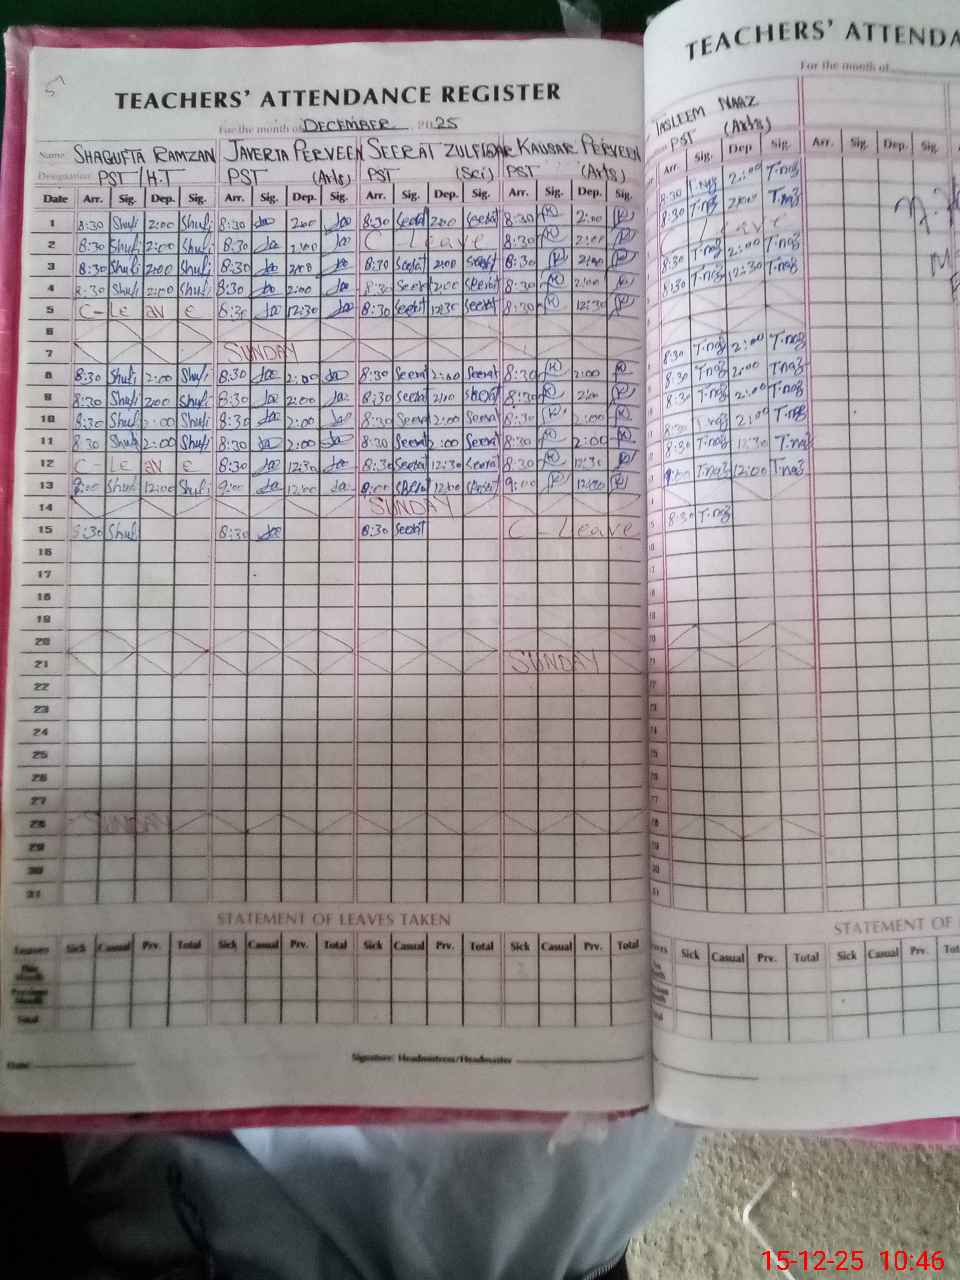 TEACHERS' ATTENDANCE REGISTER
For the month of DECEMBER 2025
Name SHAGUFTA RAMZAN JAVERIA PERVEEN SEERAT ZULFIQAR KAUSAR PERVEEN
Designation PST/H.T PST (Arts) PST (Sci) PST (Arts)
Date Arr. Sig. Dep. Sig. Arr. Sig. Dep. Sig. Arr. Sig. Dep. Sig. Arr. Sig. Dep. Sig.
1 8:30 Shufi 2:00 Shufi 8:30 2:00 8:30 Seerat 2:00 Seerat 8:30 2:00
2 8:30 Shufi 2:00 Shufi 8:30 2:00 C Leave 8:30 2:00
3 8:30 Shufi 2:00 Shufi 8:30 2:00 8:30 Seerat 2:00 Seerat 8:30 2:00
4 8:30 Shufi 2:00 Shufi 8:30 2:00 8:30 Seerat 2:00 Seerat 8:30 2:00
5 C-Leave 8:30 12:30 8:30 Seerat 12:30 Seerat 8:30 12:30
6
7 SUNDAY
8 8:30 Shufi 2:00 Shufi 8:30 2:00 8:30 Seerat 2:00 Seerat 8:30 2:00
9 8:30 Shufi 2:00 Shufi 8:30 2:00 8:30 Seerat 2:00 Seerat 8:30 2:00
10 8:30 Shufi 2:00 Shufi 8:30 2:00 8:30 Seerat 2:00 Seerat 8:30 2:00
11 8:30 Shufi 2:00 Shufi 8:30 2:00 8:30 Seerat 2:00 Seerat 8:30 2:00
12 C-Leave 8:30 12:30 8:30 Seerat 12:30 Seerat 8:30 12:30
13 9:00 Shufi 12:00 Shufi 9:00 12:00 9:00 Seerat 12:00 Seerat 9:00 12:00
14 SUNDAY
15 8:30 Shufi 8:30 8:30 Seerat C-Leave
16
17
18
19
20
21 SUNDAY
22
23
24
25
26
27
28 SUNDAY
29
30
31
STATEMENT OF LEAVES TAKEN
Leaves Sick Casual Prv. Total Sick Casual Prv. Total Sick Casual Prv. Total Sick Casual Prv. Total
This Month
Previous Month
Total
Date Signature: Headmistress/Headmaster
TEACHERS' ATTENDA
For the month of
TASLEEM NAAZ
PST (Arts)
Arr. Sig. Dep Sig. Arr. Sig. Dep. Sig.
8:30 T.naz 2:00 T.naz
8:30 T.naz 2:00 T.naz
C Leave
8:30 T.naz 2:00 T.naz
8:30 T.naz 12:30 T.naz
8:30 T.naz 2:00 T.naz
8:30 T.naz 2:00 T.naz
8:30 T.naz 2:00 T.naz
8:30 T.naz 2:00 T.naz
8:30 T.naz 12:30 T.naz
9:00 T.naz 12:00 T.naz
8:30 T.naz
STATEMENT OF
Sick Casual Prv. Total Sick Casual Prv.
15-12-25 10:46